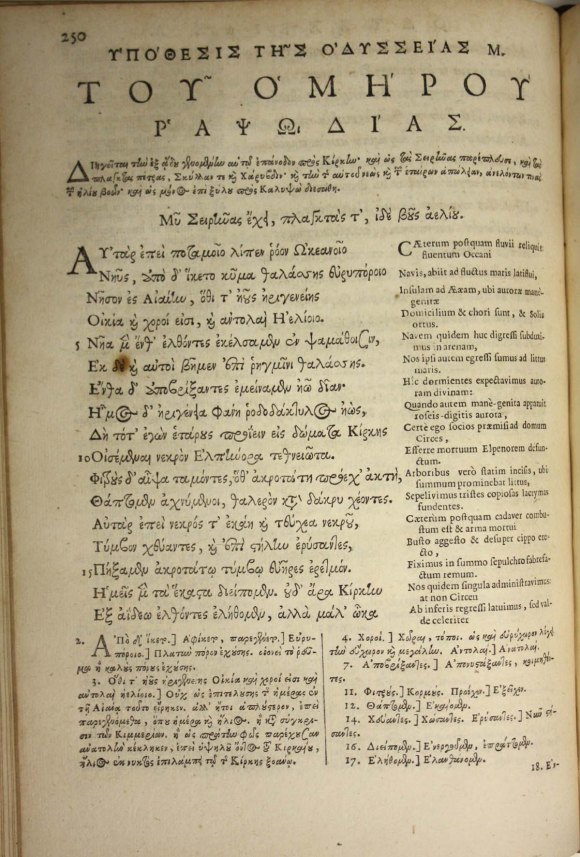 250
ΥΠΟΘΕΣΙΣ ΤΗΣ ΟΔΥΣΣΕΙΑΣ Μ.
ΤΟΥ ΟΜΗΡΟΥ
ΡΑΨΩΔΙΑΣ.
Διηγεῖται τὴν ἐξ ᾅδου γενομένην αὐτοῦ ἐπάνοδον πρὸς Κίρκην· καὶ ὡς τὰς Σειρῆνας παρέπλευσε, καὶ τὰς
πλαγκτὰς πέτρας, Σκύλλαν τε καὶ Χάρυβδιν· καὶ τὴν τ̃ αὐτοῦ νεὼς καὶ τ̃ ἑταίρων ἀπώλειαν, ἀνελόντων τινὰς
τ̃ ἡλίου βοῦν· καὶ ὡς μόνος ἐπὶ ξύλου πρὸς Καλυψὼ διεσώθη.
Μῦ Σειρῆνας ἔχει, πλαγκτάς τ', ἰδὲ βοῦς ἀελίου.
Αὐτὰρ ἐπεὶ ποταμοῖο λίπεν ῥόον Ὠκεανοῖο
Νηῦς, ἀπὸ δ' ἵκετο κῦμα θαλάσσης εὐρυπόροιο
Νῆσόν ἐς Αἰαίην, ὅθι τ' ἠοῦς ἠριγενείης
Οἰκία καὶ χοροί εἰσι, καὶ ἀντολαὶ Ἠελίοιο.
5 Νῆα μὲν ἔνθ' ἐλθόντες ἐκέλσαμεν ἐν ψαμάθοισιν,
Ἐκ δὲ καὶ αὐτοὶ βῆμεν ἐπὶ ῥηγμῖνι θαλάσσης.
Ἔνθα δ' ἀποβρίξαντες ἐμείναμεν ἠῶ δῖαν·
Ἦμος δ' ἠριγένεια φάνη ῥοδοδάκτυλος ἠώς,
Δὴ τότ' ἐγὼν ἑτάρους προΐειν εἰς δώματα Κίρκης
10 Οἰσέμεναι νεκρὸν Ἐλπήνορα τεθνειῶτα.
Φιτροὺς δ' αἶψα ταμόντες, ὅθ' ἀκροτάτη πρόεχ' ἀκτὴ,
Θάπτομεν ἀχνύμενοι, θαλερὸν κατὰ δάκρυ χέοντες.
Αὐτὰρ ἐπεὶ νεκρός τ' ἐκάη καὶ τεύχεα νεκροῦ,
Τύμβον χεύαντες, καὶ ἐπὶ στήλην ἐρύσαντες,
15 Πήξαμεν ἀκροτάτῳ τύμβῳ εὐῆρες ἐρετμόν.
Ἡμεῖς μὲν τὰ ἕκαστα διείπομεν. οὐδ' ἄρα Κίρκην
Ἐξ ἀΐδεω ἐλθόντες ἐλήθομεν, ἀλλὰ μάλ' ὦκα
CÆterum postquam fluvii reliquit
fluentum Oceani
Navis, abiit ad fluctus maris latisui,
Insulam ad Ææam, ubi auroræ mane-
genitræ
Domicilium & chori sunt, & Solis
ortus.
Navem quidem huc digressi subduxi-
mus in arenam,
Nos ipsi autem egressi sumus ad littus
maris.
Hic dormientes expectavimus auro-
ram divinam:
Quando autem mane-genita apparuit
roseis-digitis aurora,
Certè ego socios præmisi ad domum
Circes,
Efferre mortuum Elpenorem defun-
ctum.
Arboribus verò statim incisis, ubi
summum prominebat littus,
Sepelivimus tristes copiosas lacrymas
fundentes.
Cæterùm postquam cadaver combu-
stum est & arma mortui
Busto aggesto & desuper cippo ere-
cto,
Fiximus in summo sepulchro fabrefa-
ctum remum.
Nos quidem singula administravimus:
at non Circen
Ab inferis regressi latuimus, sed val-
de celeriter
2. Ἀπὸ δ' ἵκετ.] Ἀφίκετ, παρεγένετ.] Εὐρυ-
πόροιο.] Πλατὺν πόρον ἐχούσης.
3. Ὅθι τ' ἠοῦς ἠριγενείης Οἰκία καὶ χοροί εἰσι καὶ
ἀντολαὶ ἠελίοιο.]
4. Χοροί.] Χῶραι, τόποι. Ἀντολαί.] Ἀνατολαί.
7. Ἀποβρίξαντες.] Ἀπονυστάξαντες, κοιμηθέν-
τες.
11. Φιτρούς.] Κορμούς. Πρόεχεν.] Ἐξεῖχεν.
12. Θάπτομεν.] Ἐκαίομεν.
14. Χεύαντες.] Χώσαντες. Ἐρύσαντες.]
16. Διείπομεν.] Ἐνεργοῦμεν, ἐπράττομεν.
17. Ἐλήθομεν.] Ἐλανθάνομεν.
18. Ἐν-